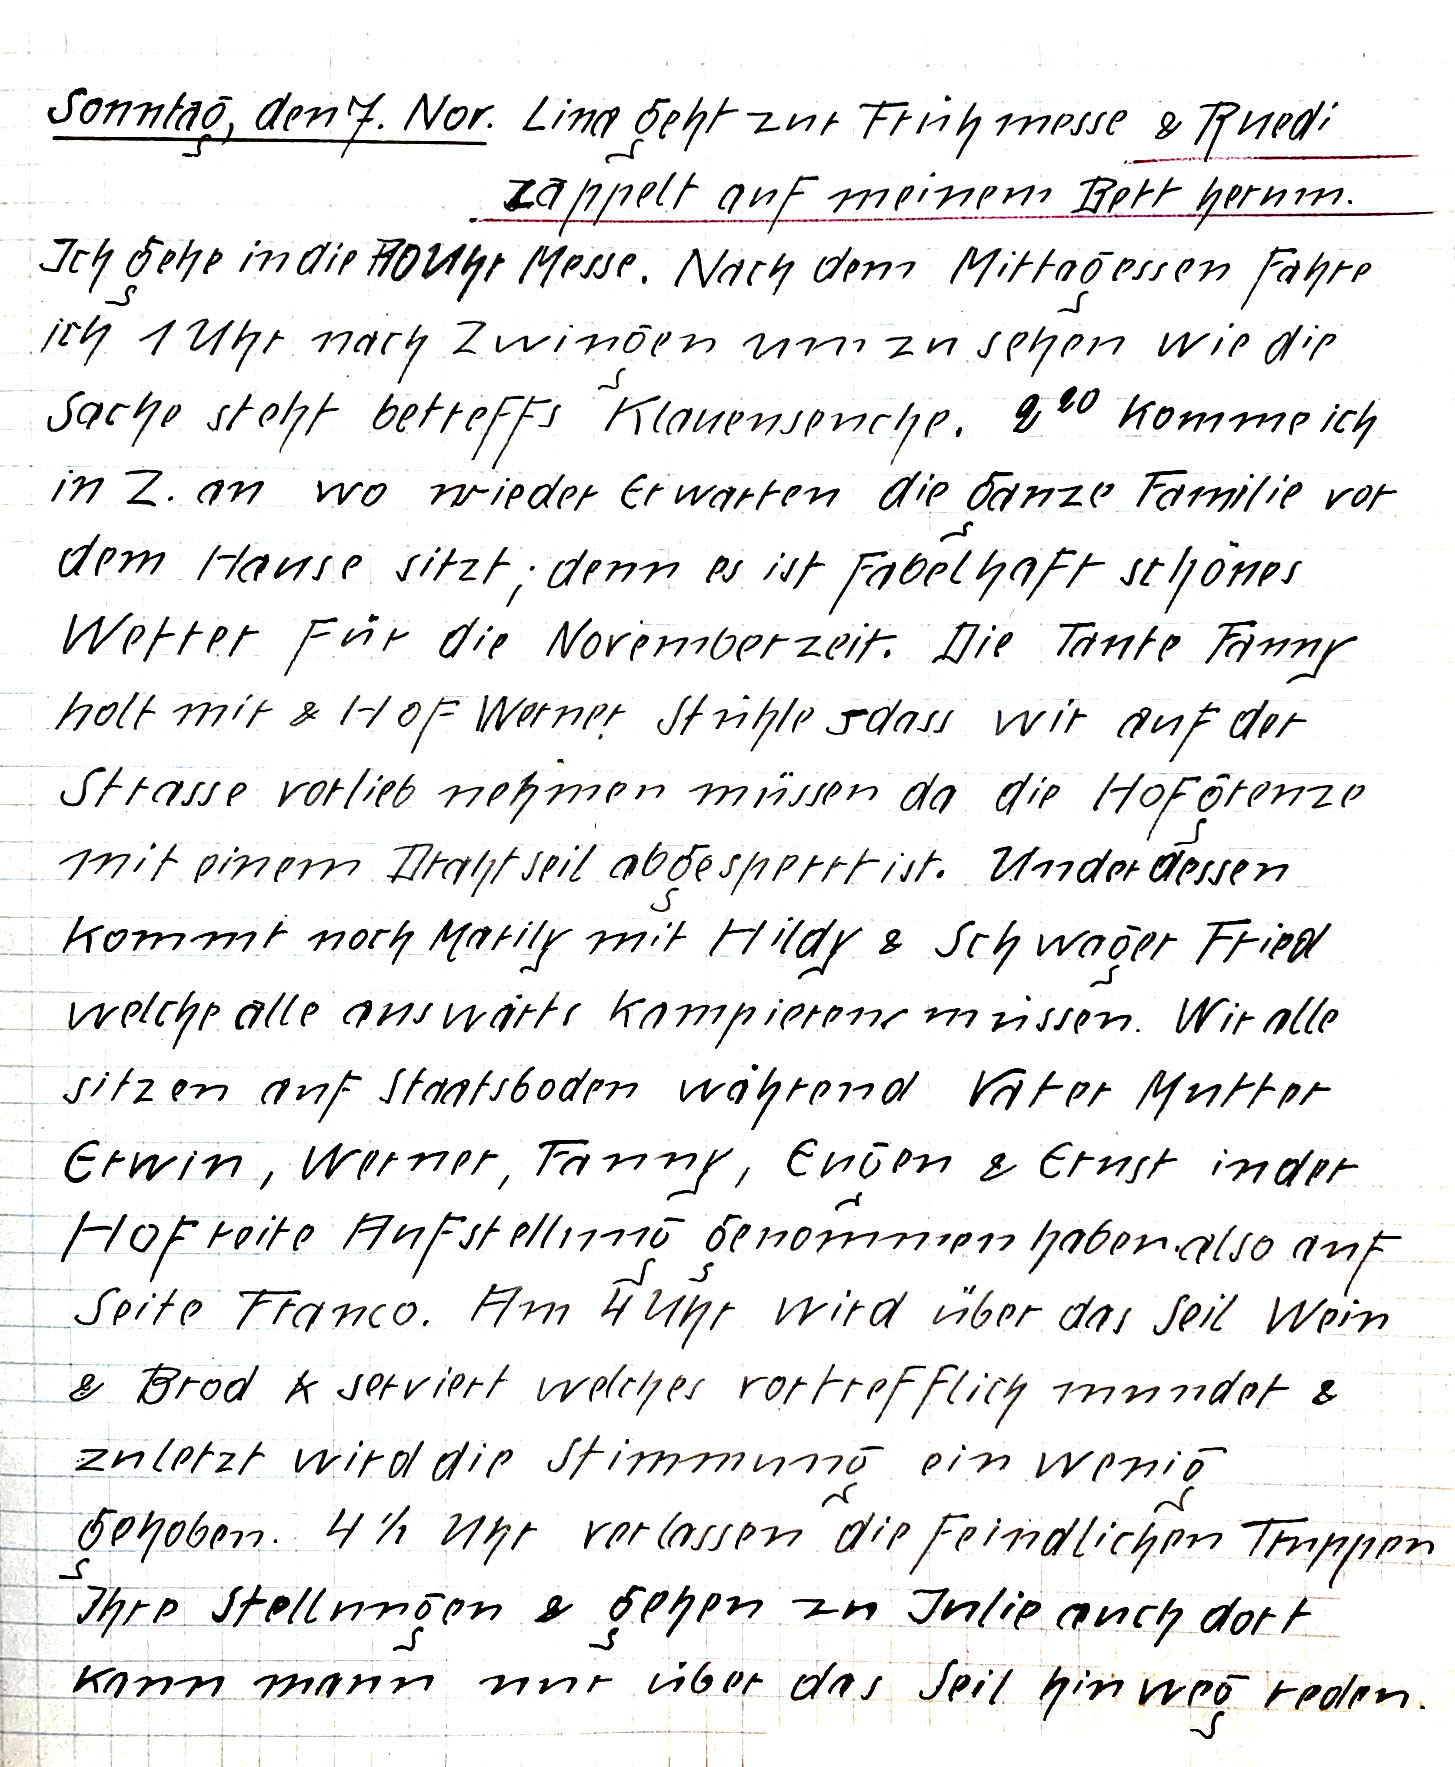 Sonntag, den 7. Nov. Lina geht zur Frühmesse & Ruedi
zappelt auf meinem Bett herum.
Ich gehe in die 10 Uhr Messe. Nach dem Mittagessen fahre
ich 1 Uhr nach Zwingen um zu sehen wie die
Sache steht betreffs Klauenseuche. 2²⁰ komme ich
in Z. an wo wieder Erwarten die ganze Familie vor
dem Hause sitzt; denn es ist fabelhaft schönes
Wetter für die Novemberzeit. Die Tante Fanny
holt mir & Hof Werner Stühle sdass wir auf der
Strasse vorlieb nehmen müssen da die Hofgrenze
mit einem Drahtseil abgesperrt ist. Underdessen
kommt noch Marily mit Hildy & Schwager Fried
welche alle auswärts kampieren müssen. Wir alle
sitzen auf Staatsboden während Vater Mutter
Erwin, Werner, Fanny, Eugen & Ernst in der
Hofreite Aufstellung genommen haben also auf
Seite Franco. Am 4 Uhr wird über das Seil Wein
& Brod serviert welches vortrefflich mundet &
zuletzt wird die Stimmung ein wenig
gehoben. 4 ½ Uhr verlassen die feindlichen Truppen
Ihre Stellungen & gehen zu Julie auch dort
kann mann nur über das Seil hinweg reden.